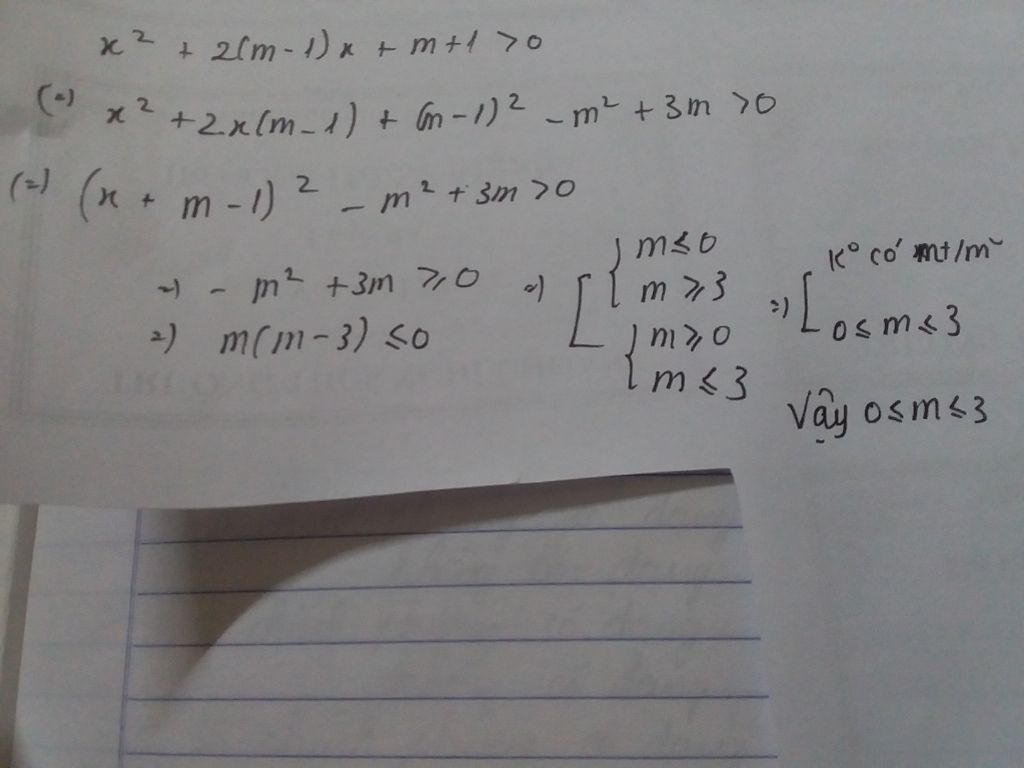 x² + 2(m-1)x + m+1 > 0
(=) x² + 2x(m-1) + (m-1)² - m² + 3m > 0
(=) (x + m - 1)² - m² + 3m > 0
=) - m² + 3m ≥ 0
=) m(m-3) ≤ 0
=) [ { m ≤ 0
m ≥ 3
{ m ≥ 0
m ≤ 3
=) [ K° có m t/m
0 ≤ m ≤ 3
Vậy 0 ≤ m ≤ 3